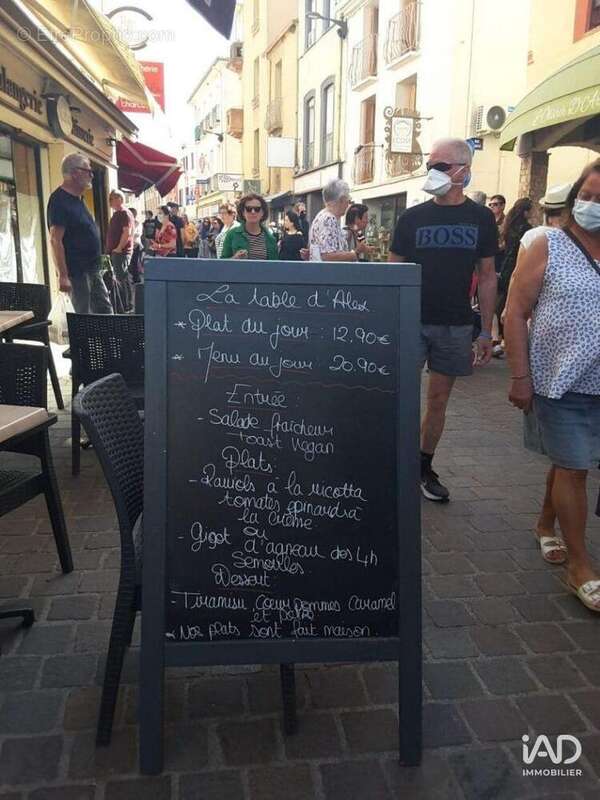 EtreProprio.com
Boulangerie
La table d'Alex
* Plat du jour : 12,90€
* Menu du jour : 20.90€
Entrée :
- Salade fraîcheur
toast vegan
Plats :
- Raviols à la ricotta
tomates épinards à
la crème.
ou
- Gigot d'agneau des 4h
Semoules.
Dessert :
- Tiramisu, Coeur pommes Caramel
et poire
* Nos plats sont fait maison.
BOSS
iAD
IMMOBILIER